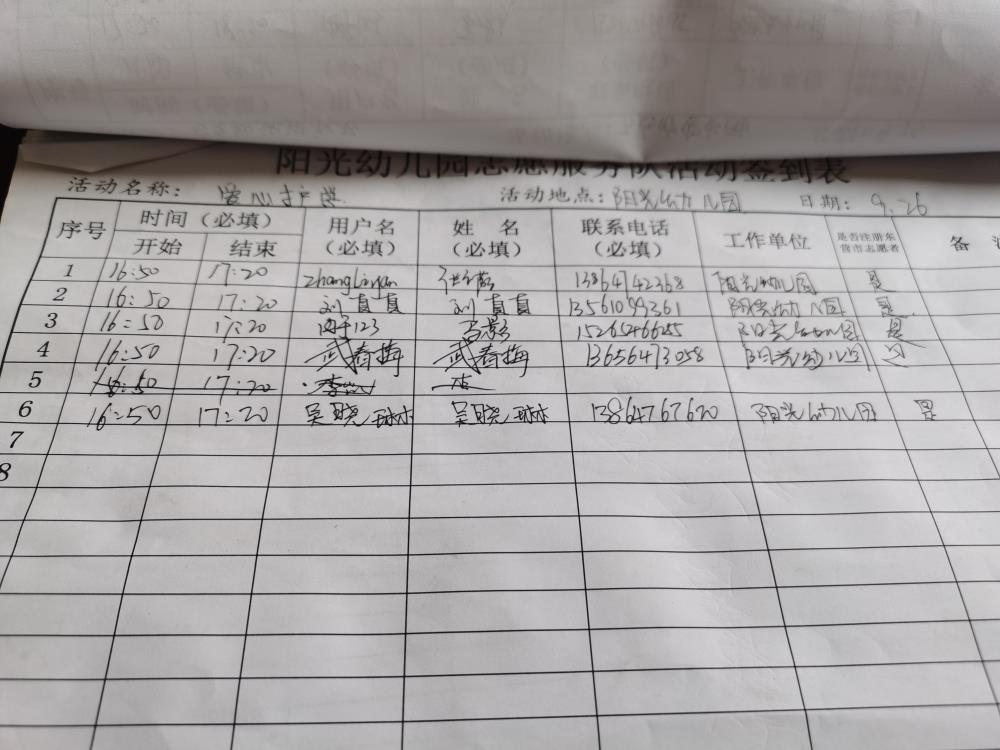 阳光幼儿园志愿服务队活动签到表
活动名称： 爱心护学 活动地点：阳光幼儿园 日期：9.26
序号 时间（必填） 用户名（必填） 姓名（必填） 联系电话（必填） 工作单位 是否注册东营市志愿者 备
开始 结束
1 16:50 17:20 zhangLinyan 13864142368 阳光幼儿园 是
2 16:50 17:20 刘直直 刘直直 13561099361 阳光幼儿园 是
3 16:50 17:20 阳光幼儿园 是
4 16:50 17:20 武春梅 武春梅 13656473058 阳光幼儿园
5 16:50 17:20
6 16:50 17:20 吴晓琳 吴晓琳 13864767620 阳光幼儿园 是
7
8